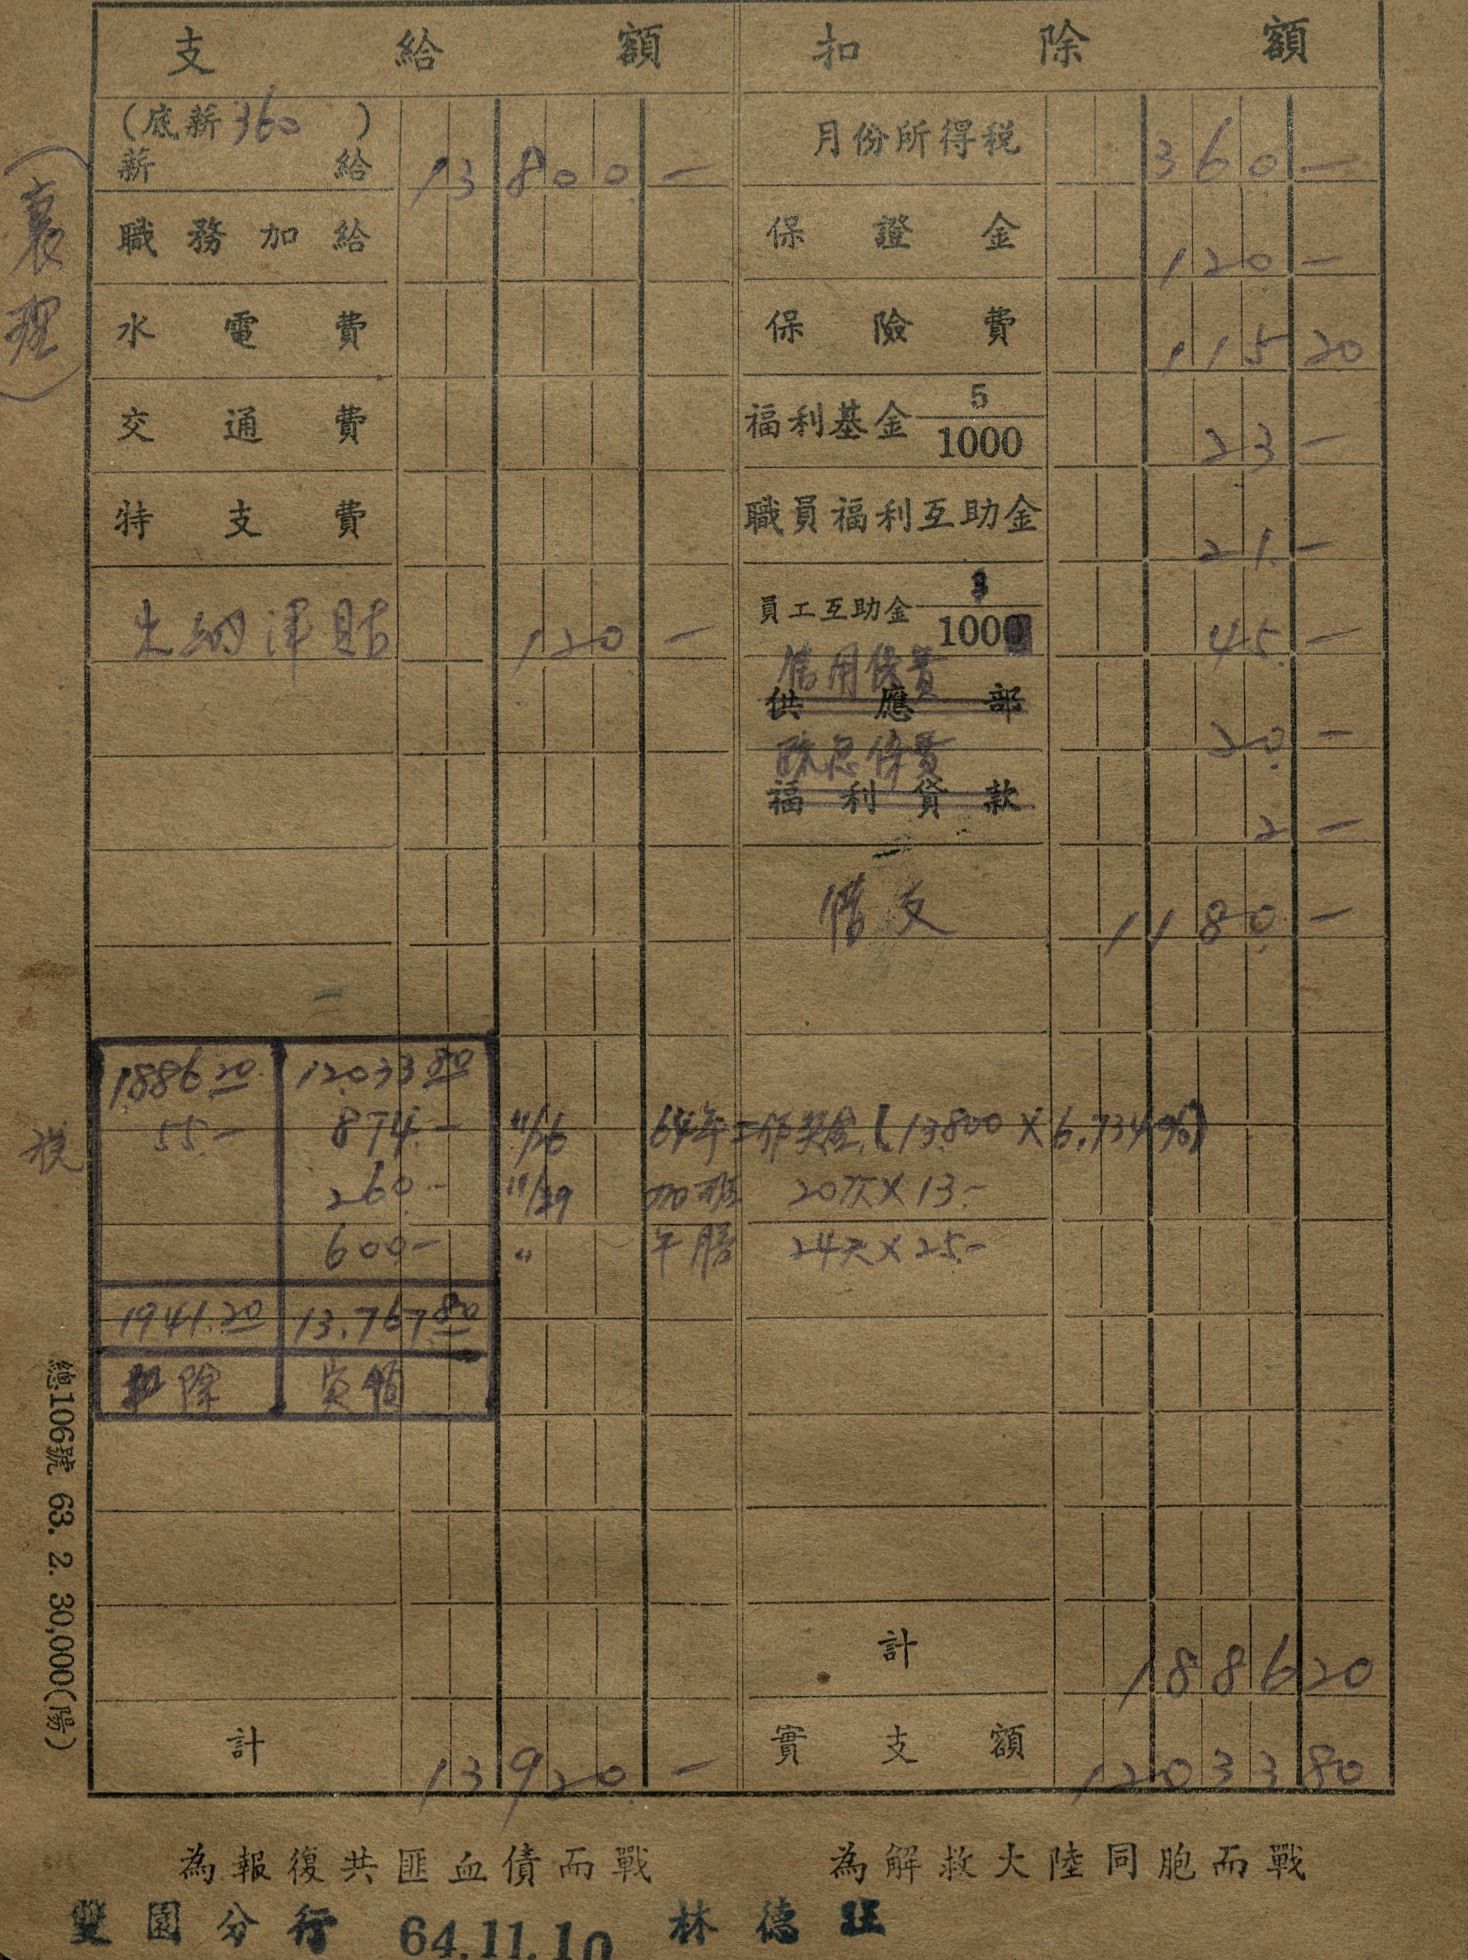 支給額 扣除額
(底薪360)
薪給 13800-
月份所得税 360-
職務加給
保證金 120-
水電費
保險費 115 20
交通費
福利基金 5/1000 23-
特支費
職員福利互助金 21.-
出納津貼 120-
員工互助金 3/1000 45-
信用保費
供應部 20-
疏忽保費
福利貸款 2-
借支 1180-
1886.20 12033.80
55.- 874.- 11/26 64年工作獎金(13,800×6.734%)
260.- 11/29 加班 20次×13.-
600- 〃 午膳 24天×25.-
1941.20 13,767.80
扣除 實領
計 1886 20
計 13920-
實支額 12033 80
為報復共匪血債而戰 為解救大陸同胞而戰
雙園分行 64.11.10 林德旺
(襄理)
税
總106號 63. 2. 30,000(陽)